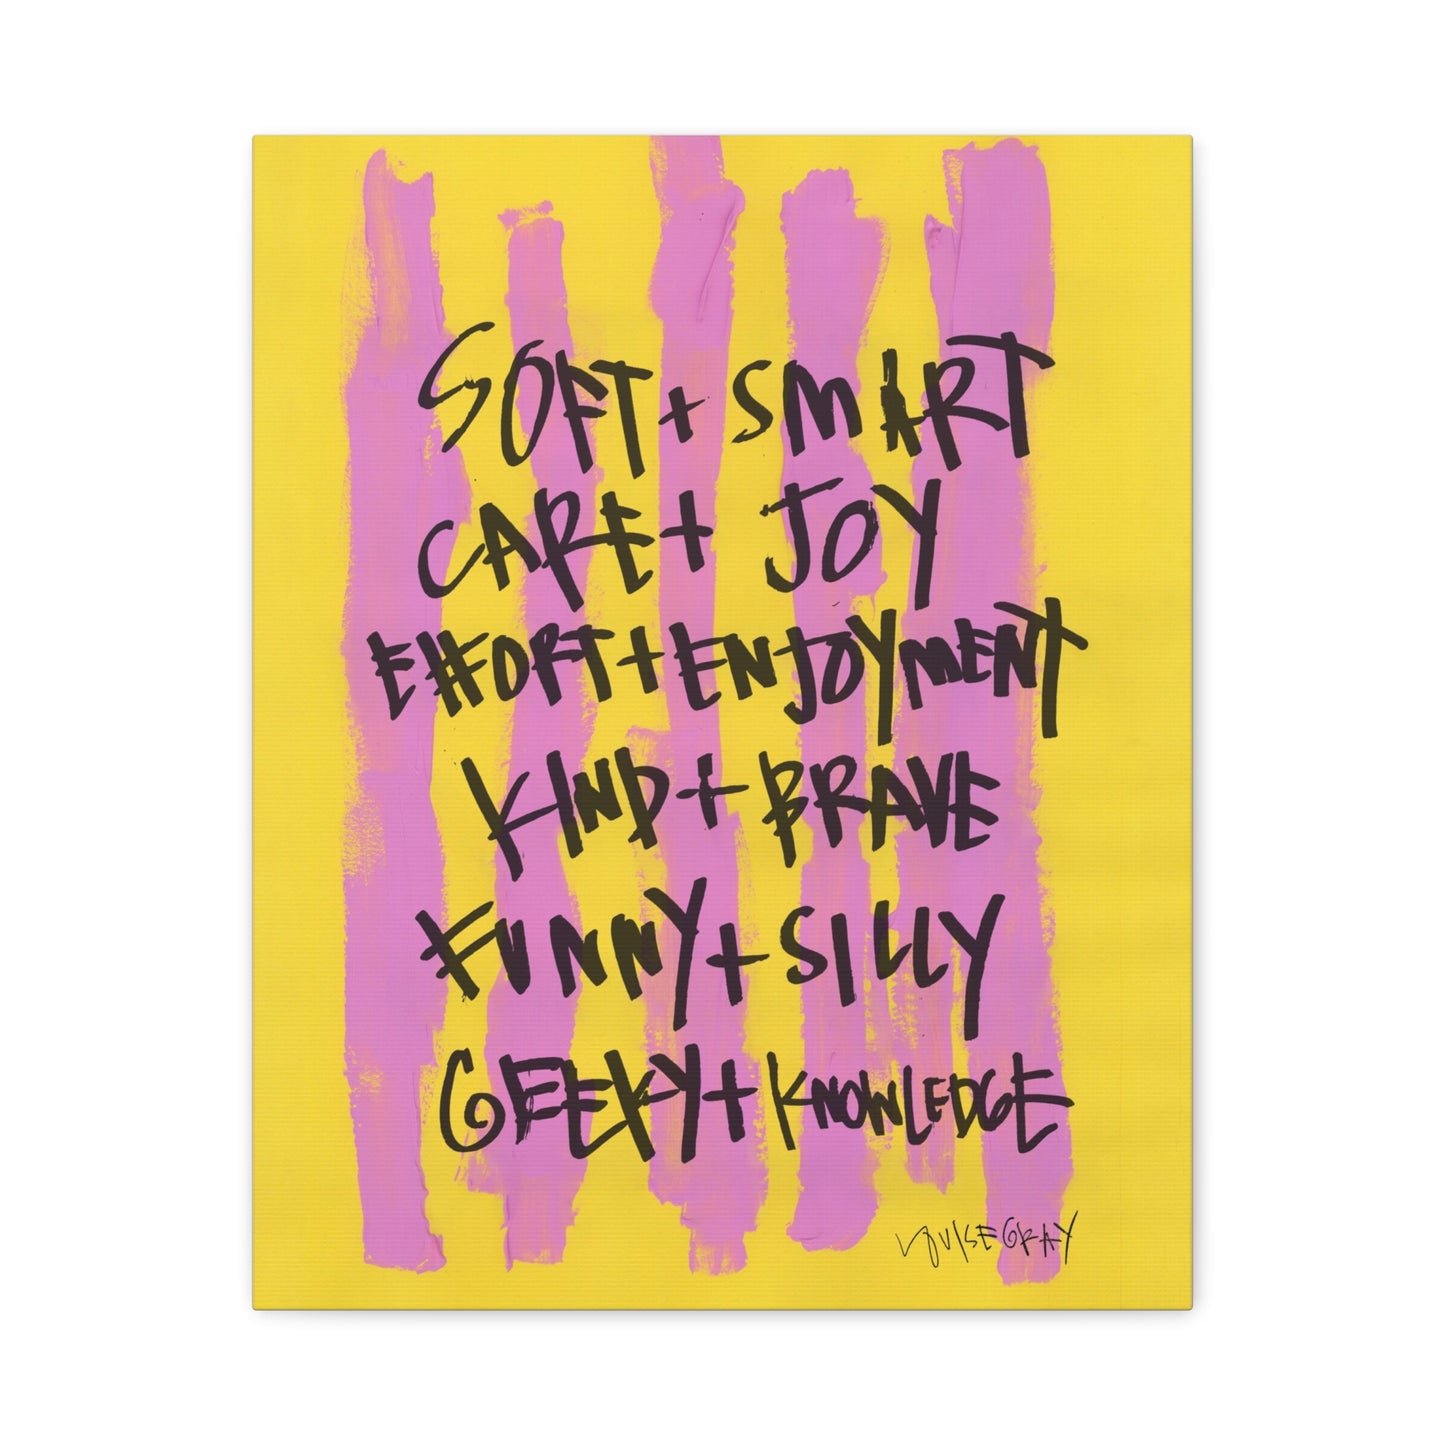 SOFT + SMART
CARE + JOY
EFFORT + ENJOYMENT
KIND + BRAVE
FUNNY + SILLY
GEEKY + KNOWLEDGE
LOUISE GRAY